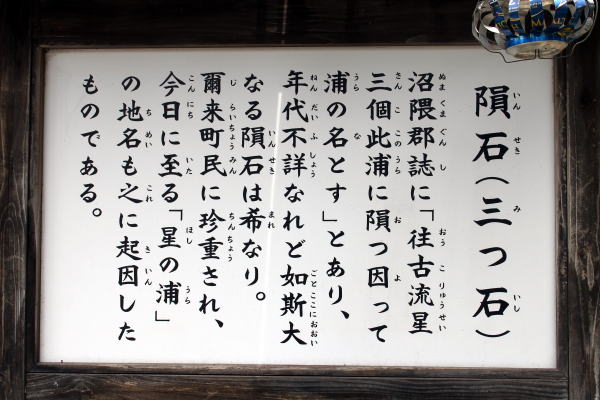 隕石（三つ石）
沼隈郡誌に「往古流星
三個此浦に隕つ因って
浦の名とす」とあり、
年代不詳なれど如斯大
なる隕石は希なり。
爾来町民に珍重され、
今日に至る「星の浦」
の地名も之に起因した
ものである。